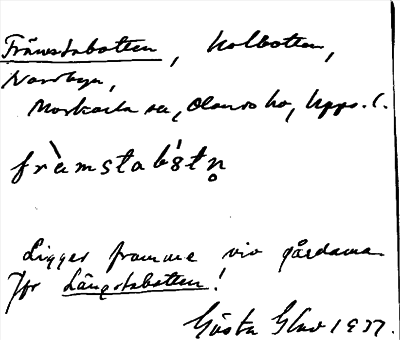 Främstabotten, Kolbotten,
Norrbyn,
Morkarla sn, Olands hd, Upps. l.
fràmstabɞ́tn̥
Ligger framme vid gårdarna
Jfr Långstabotten!
Gösta Glad 1937.